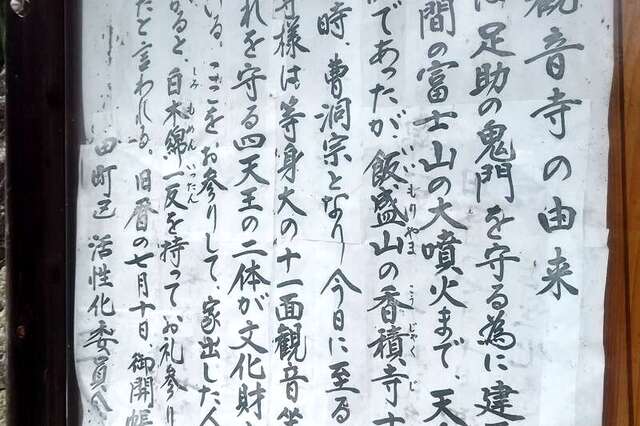 観音寺の由来
足助の鬼門を守る為に建
間の富士山の大噴火まで、天
であったが飯盛山の香積寺
いいもりやま
こうじゃくじ
時、曹洞宗となり今日に至る
様は等身大の十一面観音坐
れを守る四天王の二体が文化財
いる。ここをお参りして、家出した人
かると、白木綿一反を持ってお礼参り
しろもめんいったん
たと言われる。旧暦の七月十日御開帳
田町区 活性化委員会